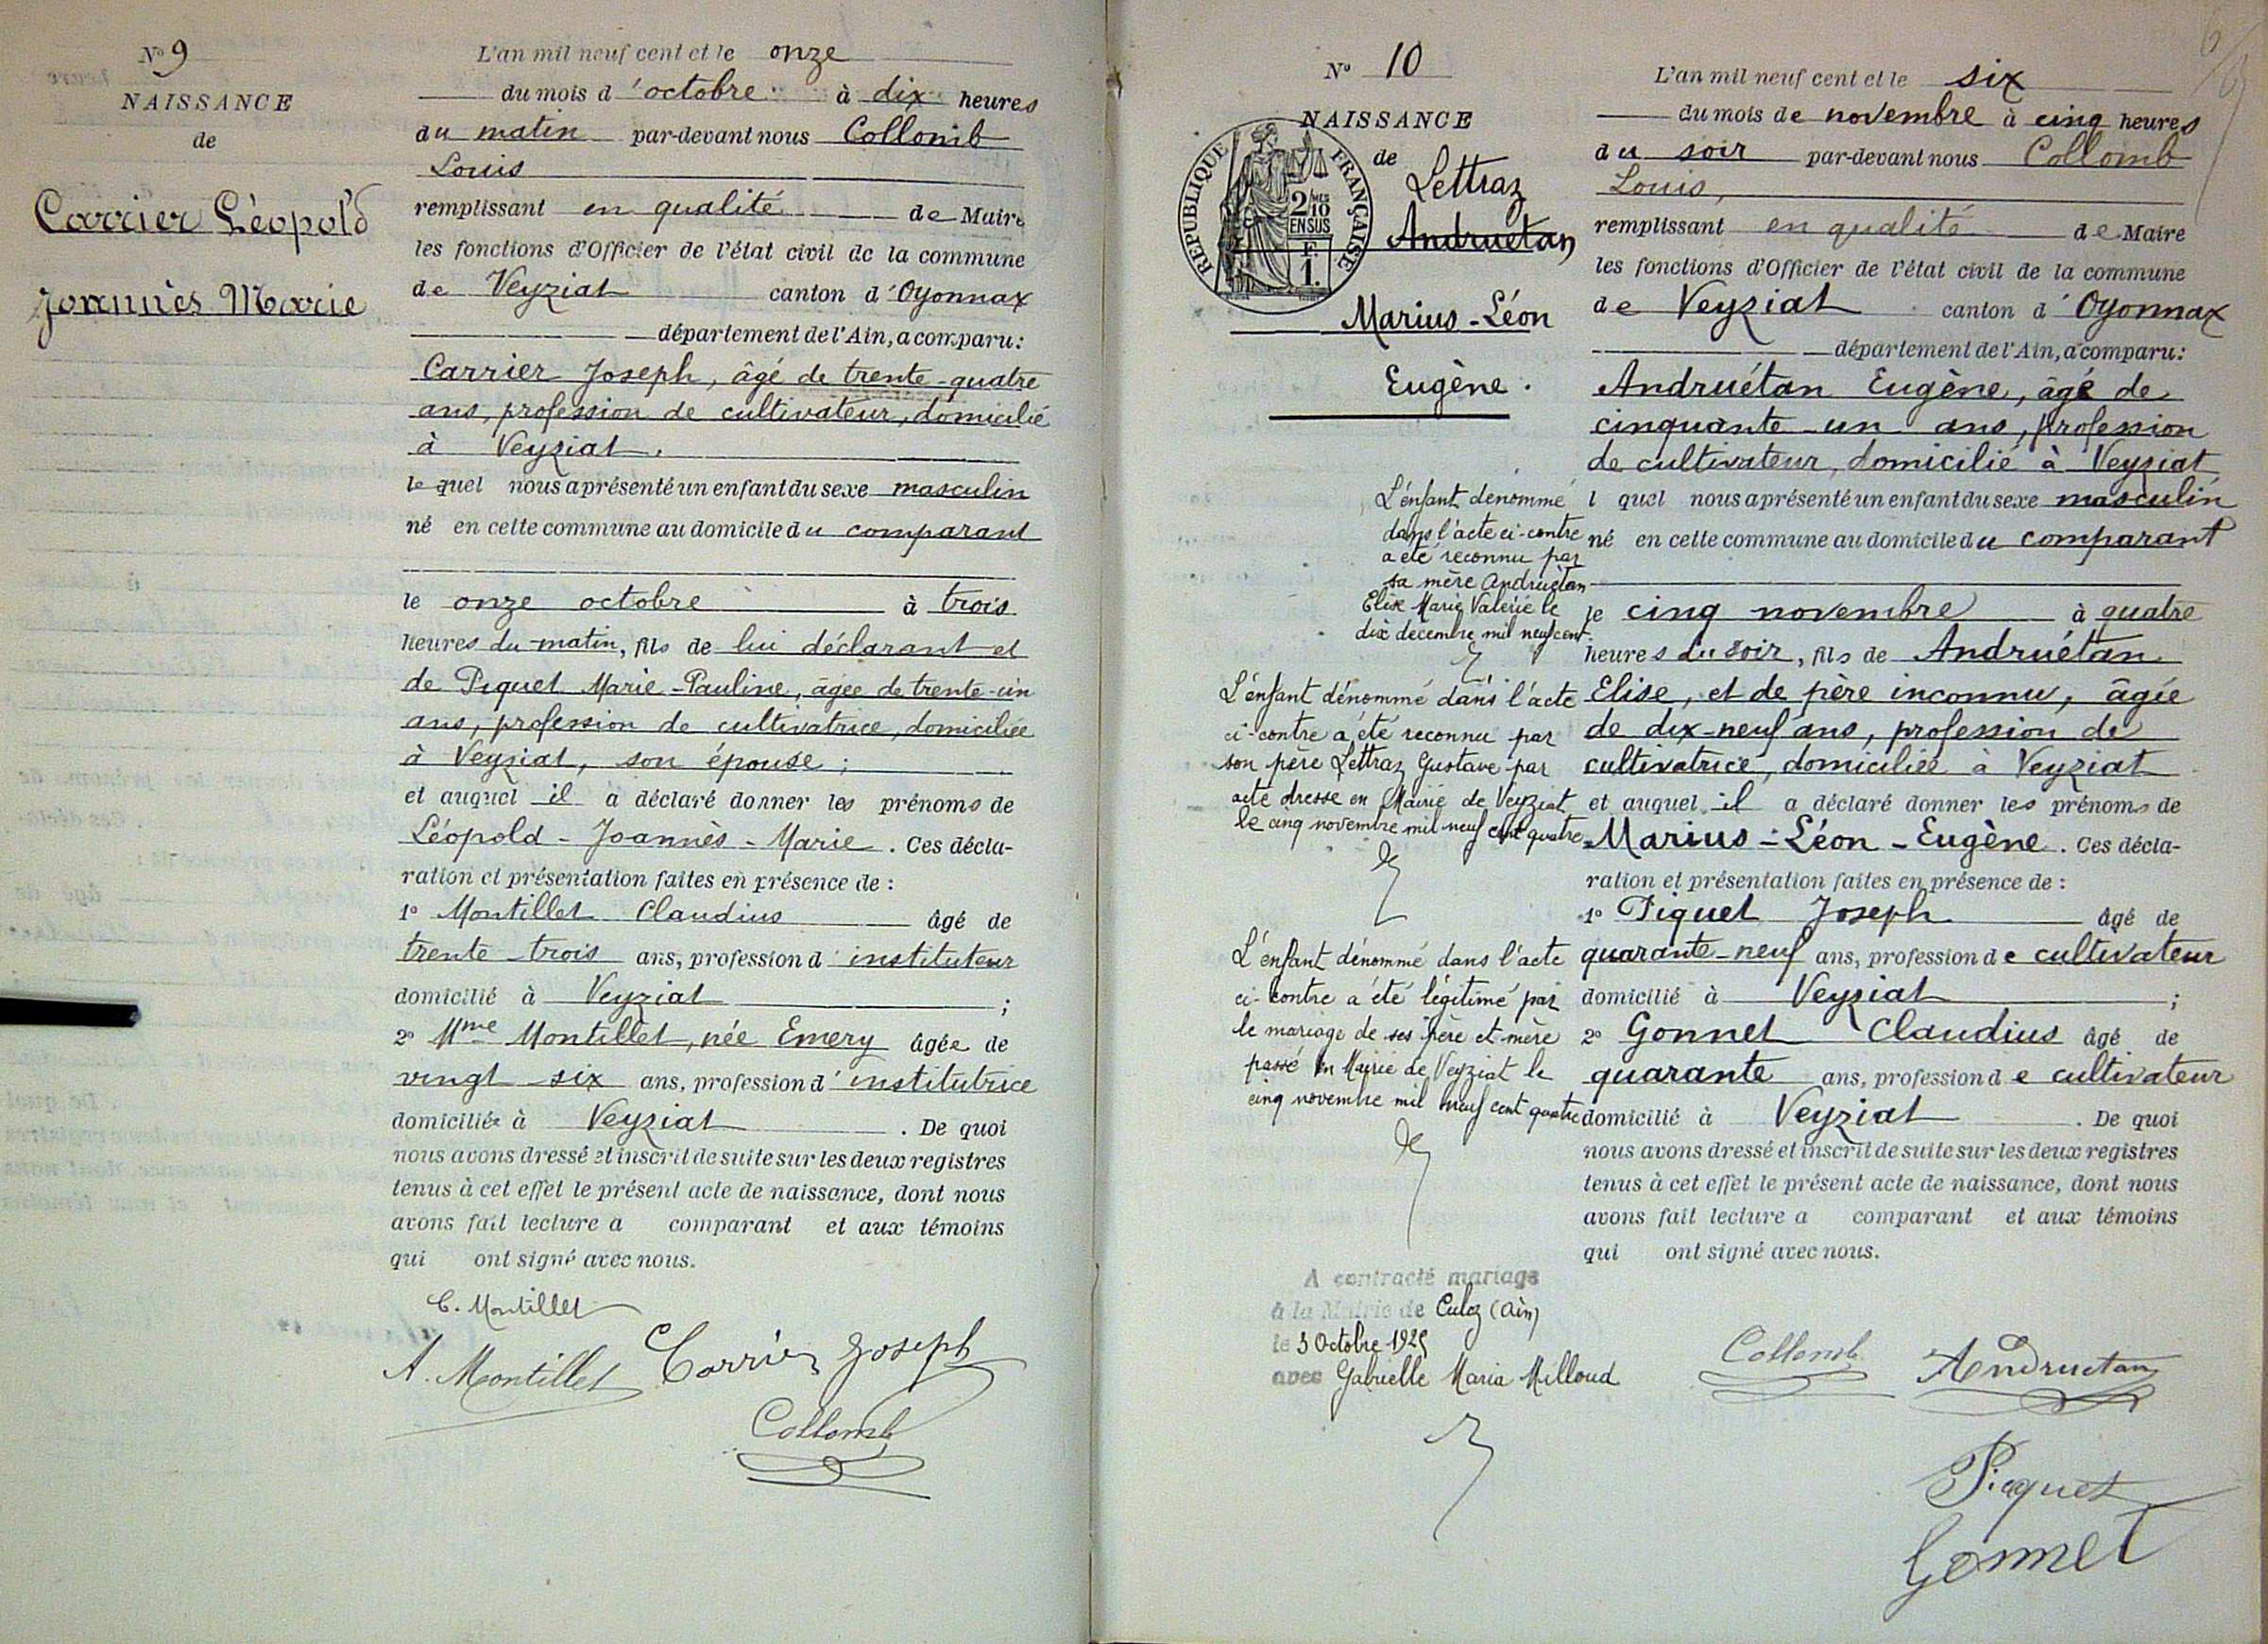 N° 9
NAISSANCE
de
Carrier Léopold
Joannès Marie
L'an mil neuf cent et le onze
du mois d'octobre à dix heures
du matin par-devant nous Collomb
Louis
remplissant en qualité de Maire
les fonctions d'Officier de l'état civil de la commune
de Veyziat canton d'Oyonnax
département de l'Ain, a comparu:
Carrier Joseph, âgé de trente-quatre
ans, profession de cultivateur, domicilié
à Veyziat.
lequel nous a présenté un enfant du sexe masculin
né en cette commune au domicile du comparant
le onze octobre à trois
heures du matin, fils de lui déclarant et
de Piquet Marie-Pauline, âgée de trente-un
ans, profession de cultivatrice, domiciliée
à Veyziat, son épouse;
et auquel il a déclaré donner les prénoms de
Léopold-Joannès-Marie. Ces décla-
ration et présentation faites en présence de :
1° Montillet Claudius âgé de
trente-trois ans, profession d'instituteur
domicilié à Veyziat ;
2° Mme Montillet, née Emery âgée de
vingt-six ans, profession d'institutrice
domiciliée à Veyziat . De quoi
nous avons dressé et inscrit de suite sur les deux registres
tenus à cet effet le présent acte de naissance, dont nous
avons fait lecture a comparant et aux témoins
qui ont signé avec nous.
C. Montillet
A. Montillet Carrier Joseph
Collomb
N° 10
NAISSANCE
de
RÉPUBLIQUE FRANÇAISE
2/10 EN SUS
F.
1.
Lettraz
Andruetan
Marius-Léon
Eugène.
L'enfant dénommé
dans l'acte ci-contre
a été reconnu par
sa mère Andruétan
Elise Marie Valérie le
dix décembre mil neuf cent.
L'enfant dénommé dans l'acte
ci-contre a été reconnu par
son père Lettraz Gustave par
acte dressé en Mairie de Veyziat
le cinq novembre mil neuf cent quatre
L'enfant dénommé dans l'acte
ci-contre a été légitimé par
le mariage de ses père et mère
passé en Mairie de Veyziat le
cinq novembre mil neuf cent quatre
A contracté mariage
à la Mairie de Culoz (Ain)
le 3 Octobre 1925
avec Gabrielle Maria Milloud
L'an mil neuf cent et le six
du mois de novembre à cinq heures
du soir par-devant nous Collomb
Louis,
remplissant en qualité de Maire
les fonctions d'Officier de l'état civil de la commune
de Veyziat canton d'Oyonnax
département de l'Ain, a comparu:
Andruétan Eugène, âgé de
cinquante-un ans, profession
de cultivateur, domicilié à Veyziat
l quel nous a présenté un enfant du sexe masculin
né en cette commune au domicile du comparant
le cinq novembre à quatre
heures du soir, fils de Andruétan
Elise, et de père inconnu, âgée
de dix-neuf ans, profession de
cultivatrice, domiciliée à Veyziat
et auquel il a déclaré donner les prénoms de
Marius-Léon-Eugène. Ces décla-
ration et présentation faites en présence de :
1° Piquet Joseph âgé de
quarante-neuf ans, profession de cultivateur
domicilié à Veyziat ;
2° Gonnet Claudius âgé de
quarante ans, profession de cultivateur
domicilié à Veyziat . De quoi
nous avons dressé et inscrit de suite sur les deux registres
tenus à cet effet le présent acte de naissance, dont nous
avons fait lecture a comparant et aux témoins
qui ont signé avec nous.
Collomb Andruetan
Piquet
Gonnet